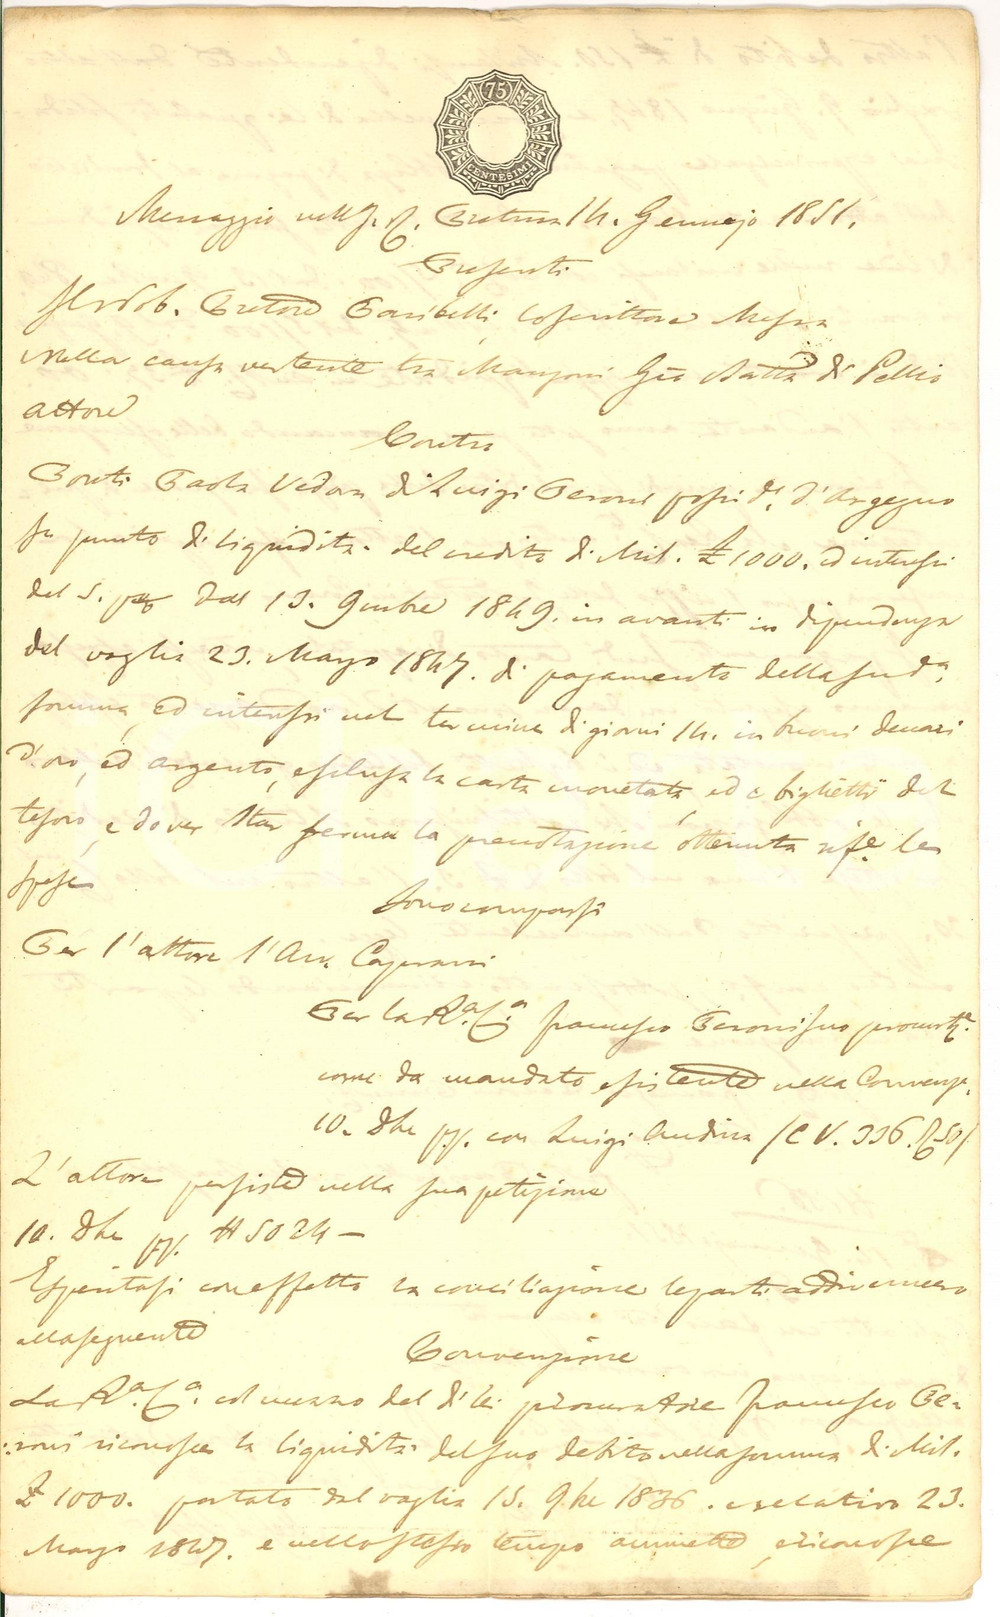 75
CENTESIMI
Menaggio nell'I. R. Pretura 14. Gennajo 1851.
Presenti
Il Nob. Pretore Paribelli, coscrittore Messa
Nella causa vertente tra Manzoni Gio Batta di Pellio
attore
Contro
Conti Paola Vedova di Luigi Peroni possid.e d'Argegno
In punto di liquidità del credito di Mil. £ 1000. ed interessi
del 5. p% dal 15. 9mbre 1849. in avanti in dipendenza
del vaglia 23. Marzo 1847. di pagamento della sud.a
somma, ed interessi nel termine di giorni 14. in buoni denari
d'oro, ed argento, esclusa la carta monetata, ed i biglietti del
tesoro, e dover star ferma la prenotazione ottenuta rif.e le
spese
Sono comparsi
Per l'attore l'Avv.
Per la R.a C.a Francesco Peroni suo procurat.e
come da mandato esistente nella Convenz.e
10. Dbe pp. con Luigi Andina /C V. 336. R 50/
L'attore persiste nella sua petizione
10. Dbe pp. N 5024 –
Esperitasi con effetto la conciliazione le parti addivennero
alla seguente
Convenzione
La R.a C.a col mezzo del di lei procuratore Francesco Pe-
:roni riconosce la liquidità del suo debito nella somma di Mil.
£ 1000. portato dal vaglia 15. 9be 1836. e relativo 23.
Marzo 1847. e nello stesso tempo ammette, e riconosce